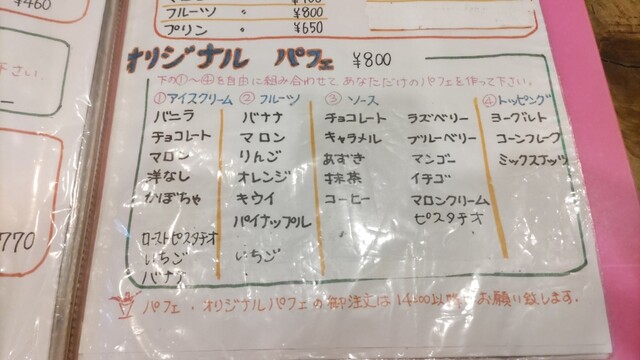 ¥460
フルーツ 〃 ¥800
プリン 〃 ¥650
オリジナル パフェ ¥800
下の①〜④を自由に組み合わせて、あなただけのパフェを作って下さい。
さい。
①アイスクリーム ②フルーツ ③ソース ④トッピング
バニラ バナナ チョコレート ラズベリー ヨーグルト
チョコレート マロン キャラメル ブルーベリー コーンフレーク
マロン りんご あずき マンゴー ミックスナッツ
洋なし オレンジ 抹茶 イチゴ
かぼちゃ キウイ コーヒー マロンクリーム
パイナップル ピスタチオ
ローストピスタチオ
770
いちご いちご
バナナ
パフェ・オリジナルパフェの御注文は14:00以降、お願い致します.